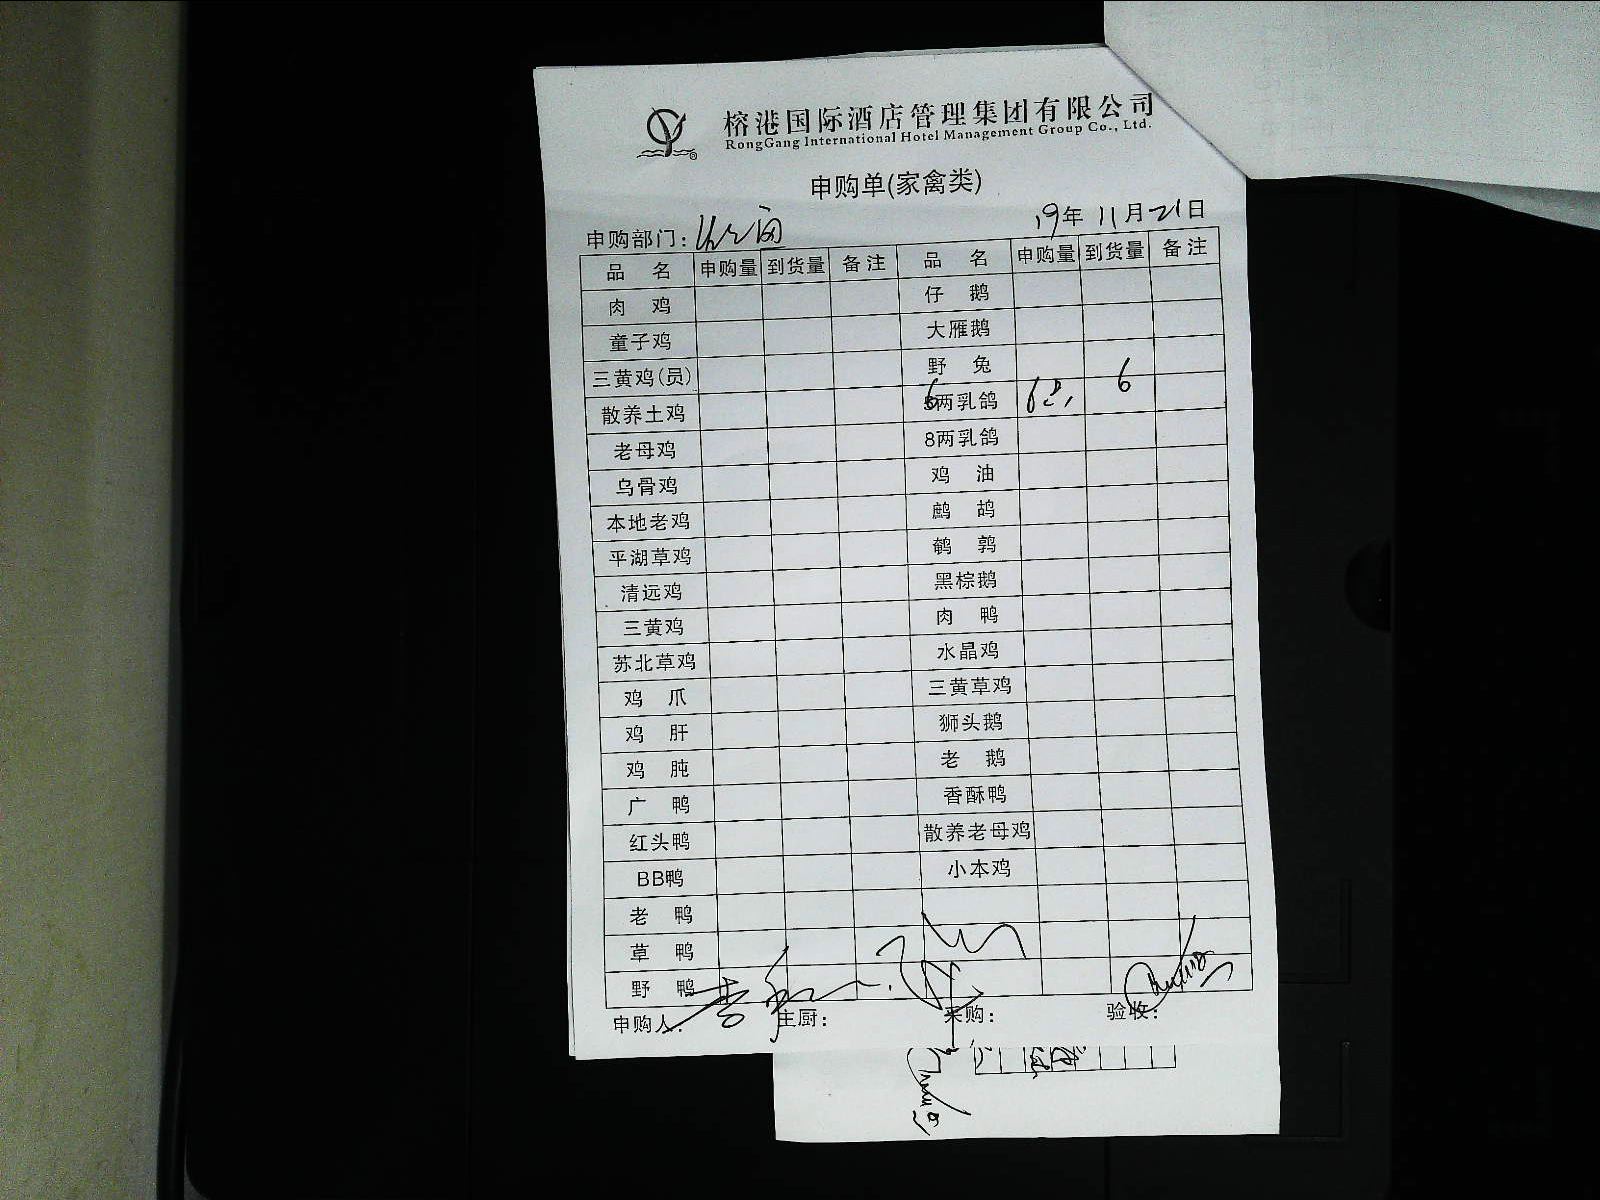 榕港国际酒店管理集团有限公司
RongGang International Hotel Management Group Co., Ltd.
申购单(家禽类)
申购部门:
19年 11月21日
品 名 申购量 到货量 备注 品 名 申购量 到货量 备注
肉 鸡 仔 鹅
童子鸡 大雁鹅
三黄鸡(员) 野 兔
散养土鸡 6两乳鸽 6只 6
老母鸡 8两乳鸽
乌骨鸡 鸡 油
本地老鸡 鹧 鸪
平湖草鸡 鹌 鹑
清远鸡 黑棕鹅
三黄鸡 肉 鸭
苏北草鸡 水晶鸡
鸡 爪 三黄草鸡
鸡 肝 狮头鹅
鸡 肫 老 鹅
广 鸭 香酥鸭
红头鸭 散养老母鸡
BB鸭 小本鸡
老 鸭
草 鸭
野 鸭
申购人: 主厨: 采购: 验收: